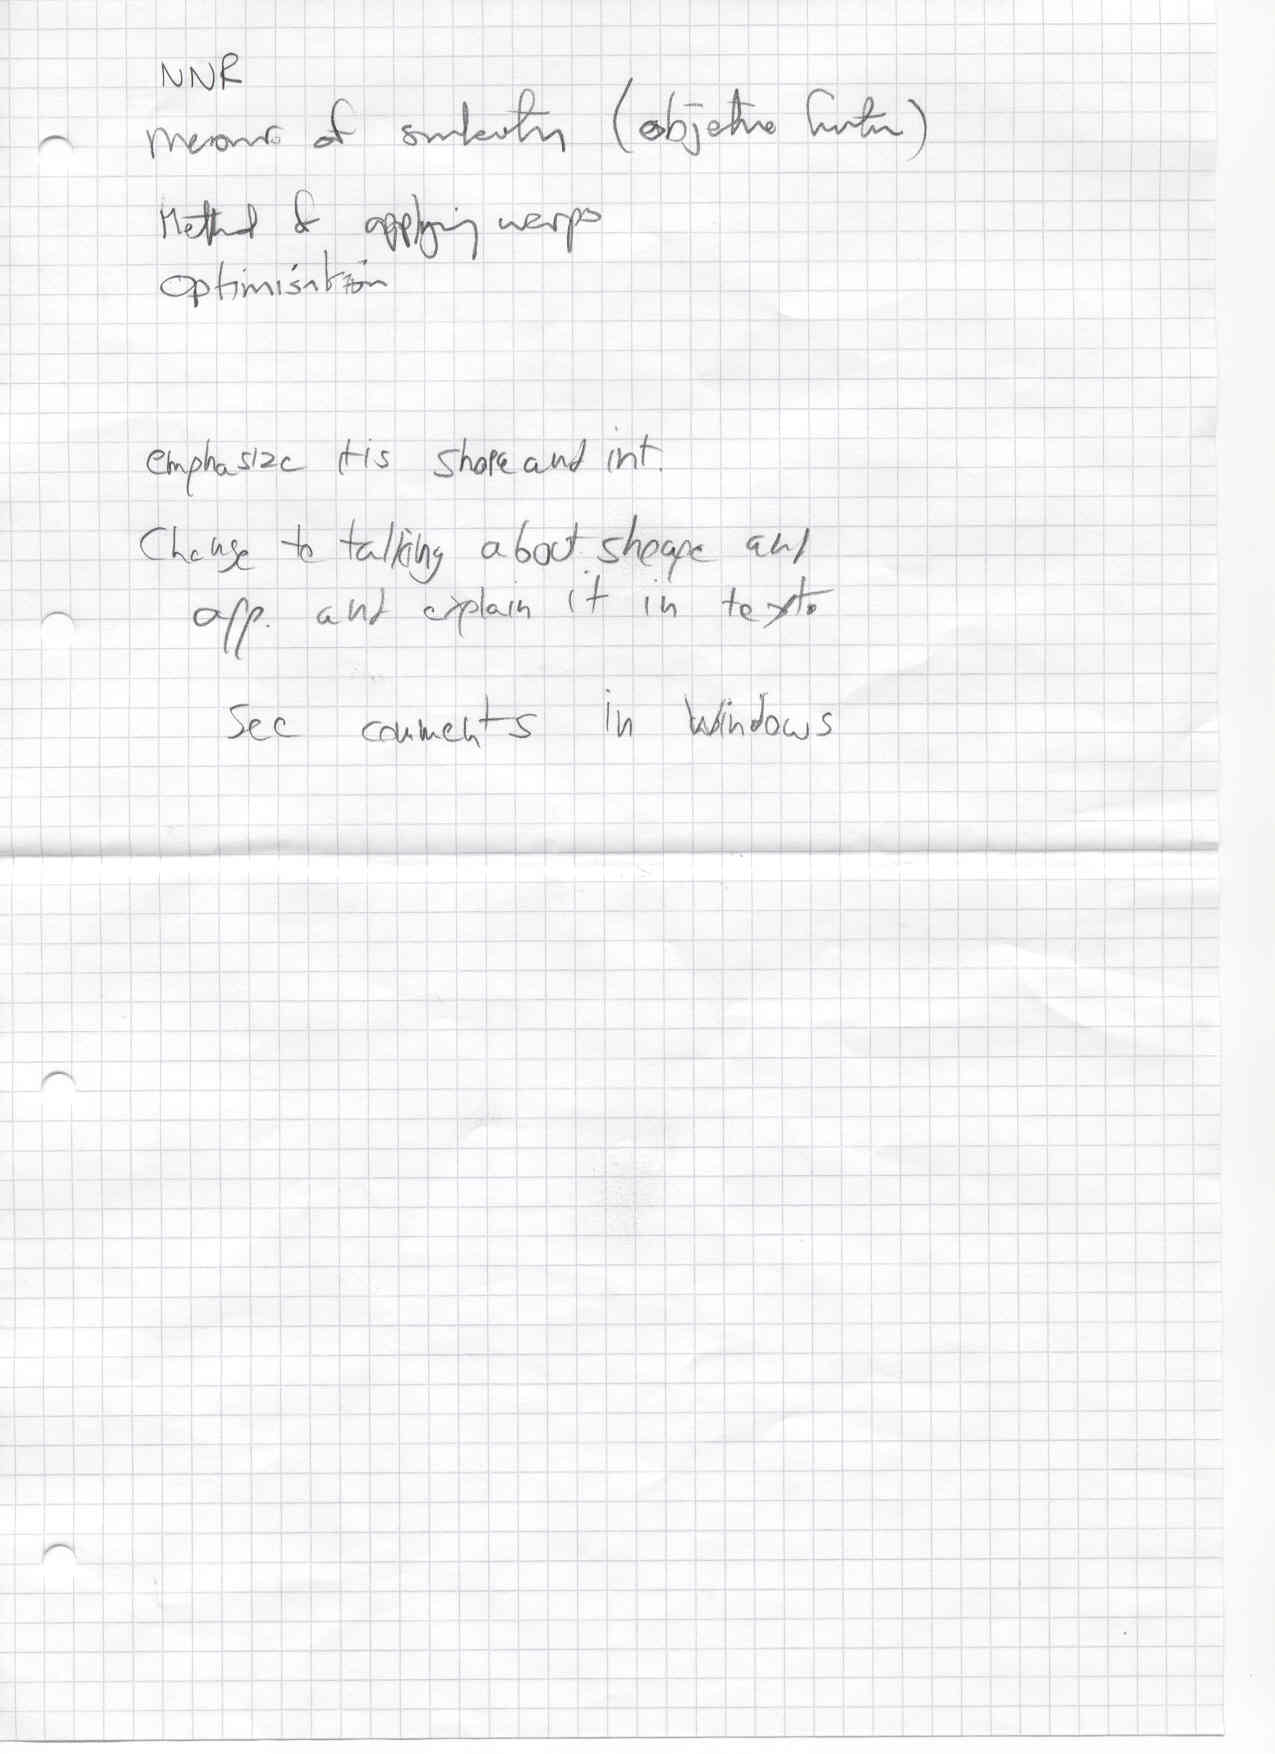 NNR
Measure of similarity (objective function)
Method of applying warps
Optimisation
emphasize it is shape and int.
Change to talking about shape and
app. and explain it in text.
See comments in Windows